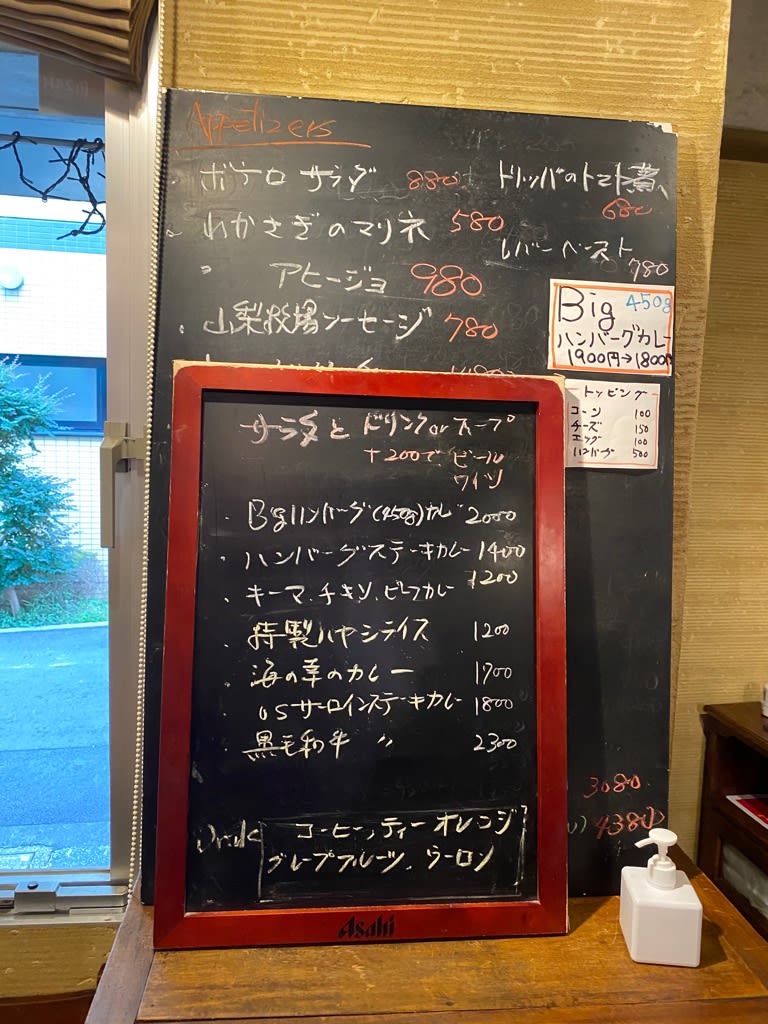 Appetizers
・ポテロ サラダ 880
トリッパのトマト煮、
680
わかさぎのマリネ 580
〃 アヒージョ 980
レバーペースト
780
・山梨牧場ソーセージ 780
Big 450g
ハンバーグカレー
1900円→1800円
トッピング
コーン 100
チーズ 150
エッグ 100
ハンバーグ 500
サラダと ドリンクorスープ
+200で ビール
ワイン
・Bigハンバーグ(450g)カレー 2000
・ハンバーグステーキカレー 1400
・キーマ、チキン、ビーフカレー 1200
・特製ハヤシライス 1200
・海の幸のカレー 1700
・USサーロインステーキカレー 1800
・黒毛和牛 〃 2300
3080
4380
Drink コーヒー、ティー オレンジ
グレープフルーツ、ウーロン
Asahi